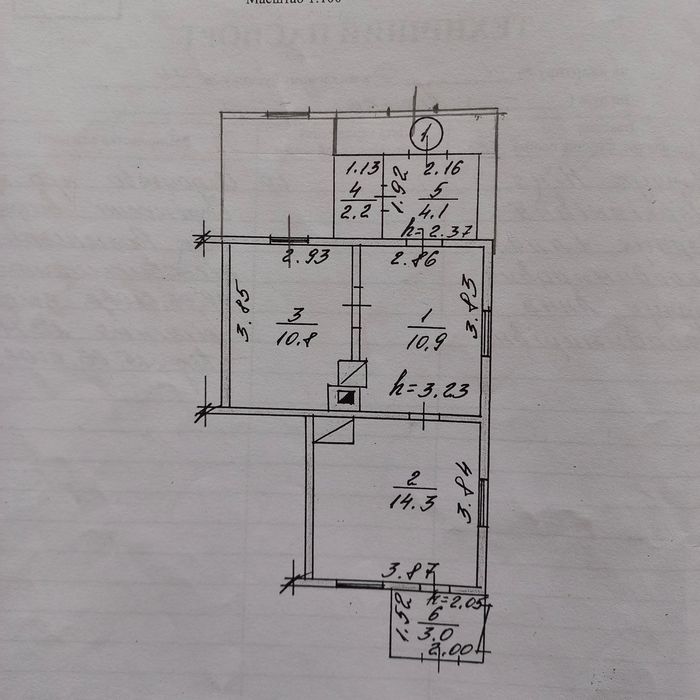 Масштаб 1:100
ТЕХНІЧНИЙ ПАСПОРТ
1
1.13
2.16
4
2.2
1.92
5
4.1
h=2.37
2.93
2.86
3.85
3
10.8
1
10.9
3.83
h=3.23
2
14.3
3.84
3.87
h=2.05
1.52
6
3.0
2.00